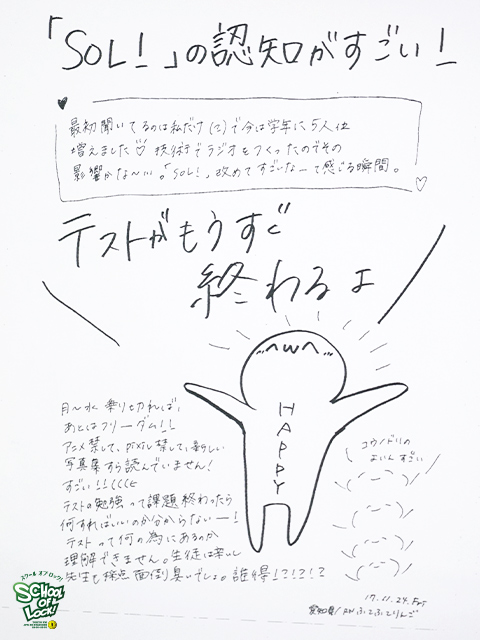 「SOL!」の認知がすごい!
最初聞いてるのは私だけ(で)で今は学年に5人位
増えました♡ 技術でラジオをつくったのでその
影響かな〜…。「SOL!」改めてすごいなーって感じる瞬間。
テストがもうすぐ
終わるよ
HAPPY
月〜水 乗り切れば、
あとはフリーダム!!
アニメ禁して、pixiv禁して、新しい
写真集すら読んでいません!
すごい!!
テストの勉強って課題終わったら
何すればいいのか分からないー!
テストって何の為にあるのか
理解できません。生徒は苦しい
先生も採点面倒臭いでしょ。誰得!?!?!?
コウノドリの
よいんすごい
17.11.24.Fri
愛知県/RNふこふこりんご
スクール オブ ロック!
SCHOOL OF LOCK!